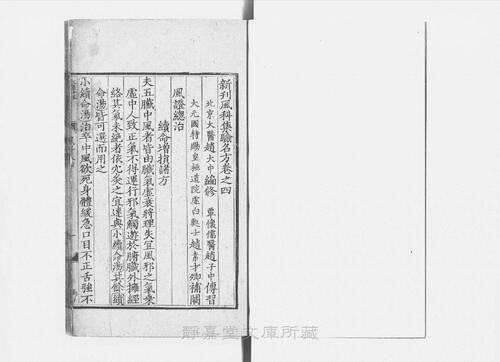 新刊風科集驗名方卷之四
北京大醫趙大中編修 覃懷儒醫趙子中傳習
大元國特賜皇極道院虛白處士趙素才卿補闕
風證總治
續命增損諸方
夫五臟中風者皆由臟氣虛衰將理失宜風邪之氣乗
虛中人致正氣不得運行邪氣觸遊於腑臟外擁經
絡其氣未絶者依穴灸之宜速與小續命湯其餘續
命湯皆可選而用之
小續命湯治卒中風欲死身體緩急口目不正舌強不
靜嘉堂文庫所藏